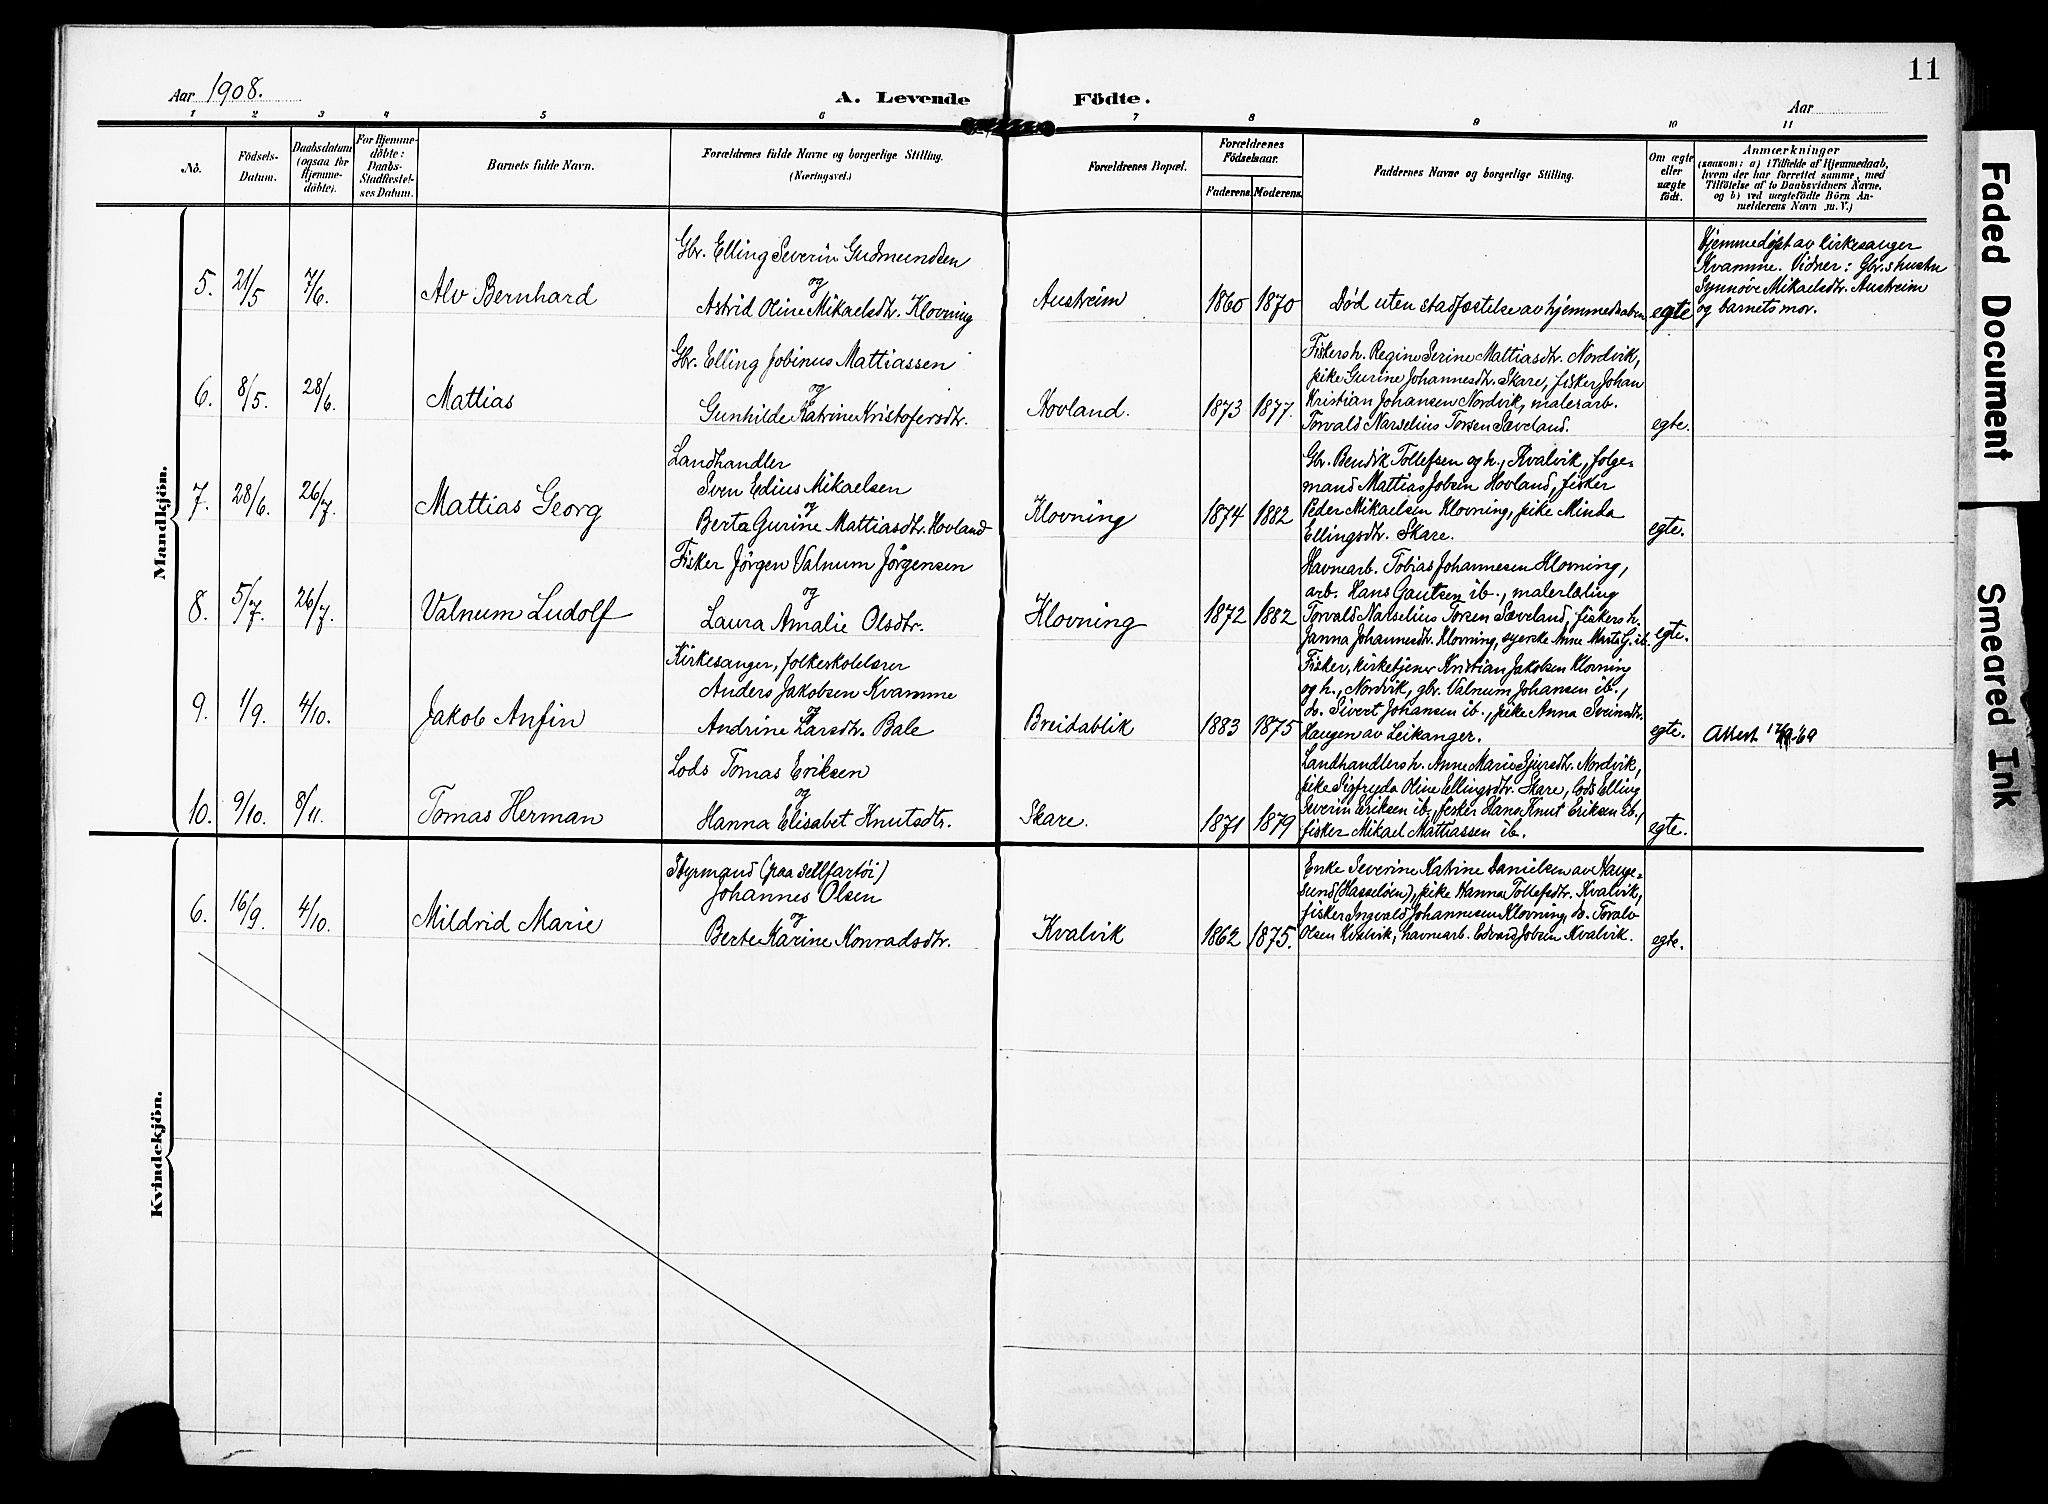 11
Aar 1908.
A. Levende Födte.
Aar
1 2 3 4 5 6 7 8 9 10 11
No.
Födsels-
Datum.
Daabsdatum
(ogsaa for
Hjemme-
döbte).
For Hjemme-
döbte:
Daabs-
Stadfæstel-
ses Datum.
Barnets fulde Navn.
Forældrenes fulde Navne og borgerlige Stilling.
(Næringsvei.)
Forældrenes Bopæl.
Forældrenes
Födselsaar.
Faderens.
Moderens.
Faddernes Navne og borgerlige Stilling.
Om ægte
eller
uægte
födt.
Anmærkninger
(saasom: a) i Tilfælde af Hjemmedaab,
hvem der har forrettet samme, med
Tilföielse af to Daabsvidners Navne,
og b) ved uægtefödte Börn An-
melderens Navn m. V.)
Mandkjön.
5.
21/5
7/6.
Alv Bernhard
Gbr. Elling Severin Gudmundsen
og
Astrid Oline Mikaelsdtr. Klovning
Austreim
1860
1870
Død uten stadfæstelse av hjemmedaaben
egte
Hjemmedøpt av kirkesanger
Kvamme. Vidner: Gbr.s hustru
Synnøve Mikaelsdtr. Austreim
og barnets mor.
6.
8/5.
28/6.
Mattias
Gbr. Elling Jobinus Mattiassen
og
Gunhilde Katrine Kristofersdtr.
Hovland.
1873
1877.
Fiskersh. Regine Serine Mattiasdtr. Nordvik,
pike Gurine Johannesdtr. Skare, fisker Johan
Kristian Johansen Nordvik, malerarb.
Torvald Narselius Torsen Sæveland.
egte.
7.
28/6.
26/7.
Mattias Georg
Landhandler
Sven Edius Mikaelsen
og
Berta Gurine Mattiasdtr. Hovland
Klovning
1874
1882
Gbr. Bendik Tollefsen og h., Kvalvik, følge-
mand Mattias Jobsen Hovland, fisker
Peder Mikaelsen Klovning, pike Minda
Ellingsdtr. Skare.
egte.
8.
5/7.
26/7.
Valnum Ludolf
Fisker Jörgen Valnum Jörgensen
og
Laura Amalie Olsdtr.
Klovning
1872
1882
Havnearb. Tobias Johannesen Klovning,
arb. Hans Gautsen ib., malerlæling
Torvald Narselius Torsen Sæveland, fiskersh.
Janna Johannesdtr. Klovning, syerske Anne Marta G. ib.
egte.
9.
1/9.
4/10.
Jakob Anfin
Kirkesanger, folkeskolelærer
Anders Jakobsen Kvamme
og
Andrine Larsdtr. Bale
Breidablik
1883
1875
Fisker, kirketjener Kristian Jakobsen Klovning
og h., Nordvik, gbr. Valnum Johansen ib.,
do. Sivert Johansen ib., pike Anna Sveinsdtr.
Haugen av Leikanger.
egte.
Attest
10.
9/10.
8/11.
Tomas Herman
Lods Tomas Eriksen
og
Hanna Elisabet Knutsdtr.
Skare.
1871
1879
Landhandlersh. Anne Marie Sjursdtr. Nordvik,
pike Sigfryda Oline Ellingsdtr. Skare, lods Elling
Severin Eriksen ib., fisker Hans Knut Eriksen ib.,
fisker Mikael Mattiassen ib.
egte.
Kvindekjön.
6.
16/9.
4/10.
Mildrid Marie
Styrmand (paa seilfartøi)
Johannes Olsen
og
Berte Karine Konradsdtr.
Kvalvik
1862
1875.
Enke Severine Katrine Danielsen av Hauge-
sund (Hasseløen), pike Hanna Tollefsdtr. Kvalvik,
fisker Ingvald Johannesen Klovning, do. Toralv
Olsen Kvalvik, havnearb. Edvard Jobsen Kvalvik.
egte.
Faded Document
Smeared Ink